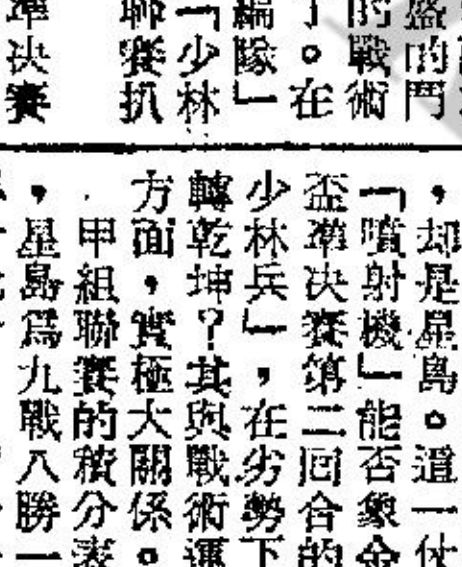 盛的鬥
的戰術
。在
編隊」
「少林
聯賽扒
準决賽
，却是星島。這一仗
「噴射機」能否象
盃準决賽第二回合的
少林兵」，在劣勢下
轉乾坤？其與戰術運
方面，實極大關係。
甲組聯賽的積分表
，星島爲九戰八勝一